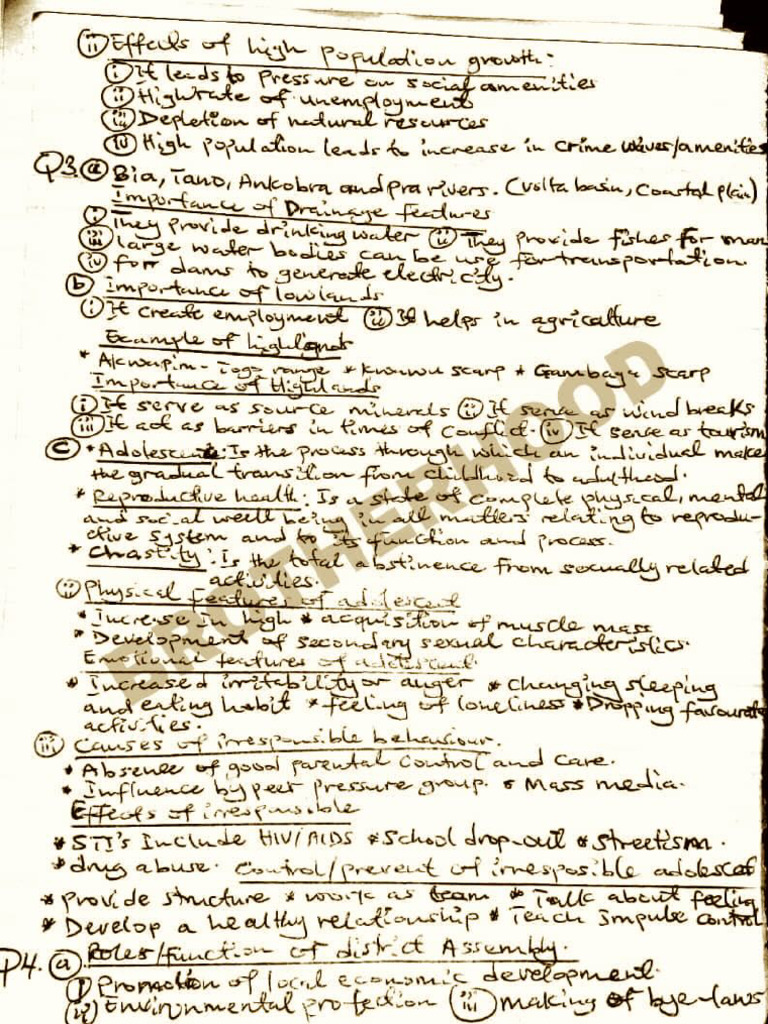 (ii) Effects of high population growth:
(i) It leads to pressure on social amenities
(ii) High rate of unemployment
(iii) Depletion of natural resources
(iv) High population leads to increase in crime waves/amenities
Q3. (a) Bia, Tano, Ankobra and pra rivers. (volta basin, Coastal plain)
Importance of Drainage features
(i) They provide drinking water (ii) They provide fishes for man
(iii) large water bodies can be use for transportation.
(iv) for dams to generate electricity.
(b) Importance of lowlands
(i) It create employment (ii) It helps in agriculture
Example of highlands
* Akwapim-Togo range * Kwawu scarp * Gambaga scarp
Importance of Highlands
(i) It serve as source minerals (ii) It serve as wind breaks
(iii) It act as barriers in times of conflict. (iv) It serve as tourism
(c) * Adolescence: Is the process through which an individual make
the gradual transition from childhood to adulthood.
* Reproductive health: Is a state of complete physical, mental
and social well being in all matters relating to reprodu-
ctive system and to its function and process.
* Chastity: Is the total abstinence from sexually related
activities.
(ii) Physical features of adolescent
* Increase in high * acquisition of muscle mass
* Development of secondary sexual characteristics.
Emotional features of adolescent
* Increased irritability or anger * changing sleeping
and eating habit * feeling of loneliness * Dropping favourate
activities.
(iii) Causes of irresponsible behaviour.
* Absence of good parental control and care.
* Influence by peer pressure group. * Mass media.
Effects of irresponsible
* STI's Include HIV/AIDS * School drop-out * Streetism.
* drug abuse. Control/prevent of irresposible adolescet
* provide structure * work as team * Talk about feeling
* Develop a healthy relationship * Teach Impulse control
Q4. (a) Roles/function of district Assembly.
(i) Promotion of local economic development.
(ii) Environmental protection (iii) making of bye-laws
BROTHERHOOD